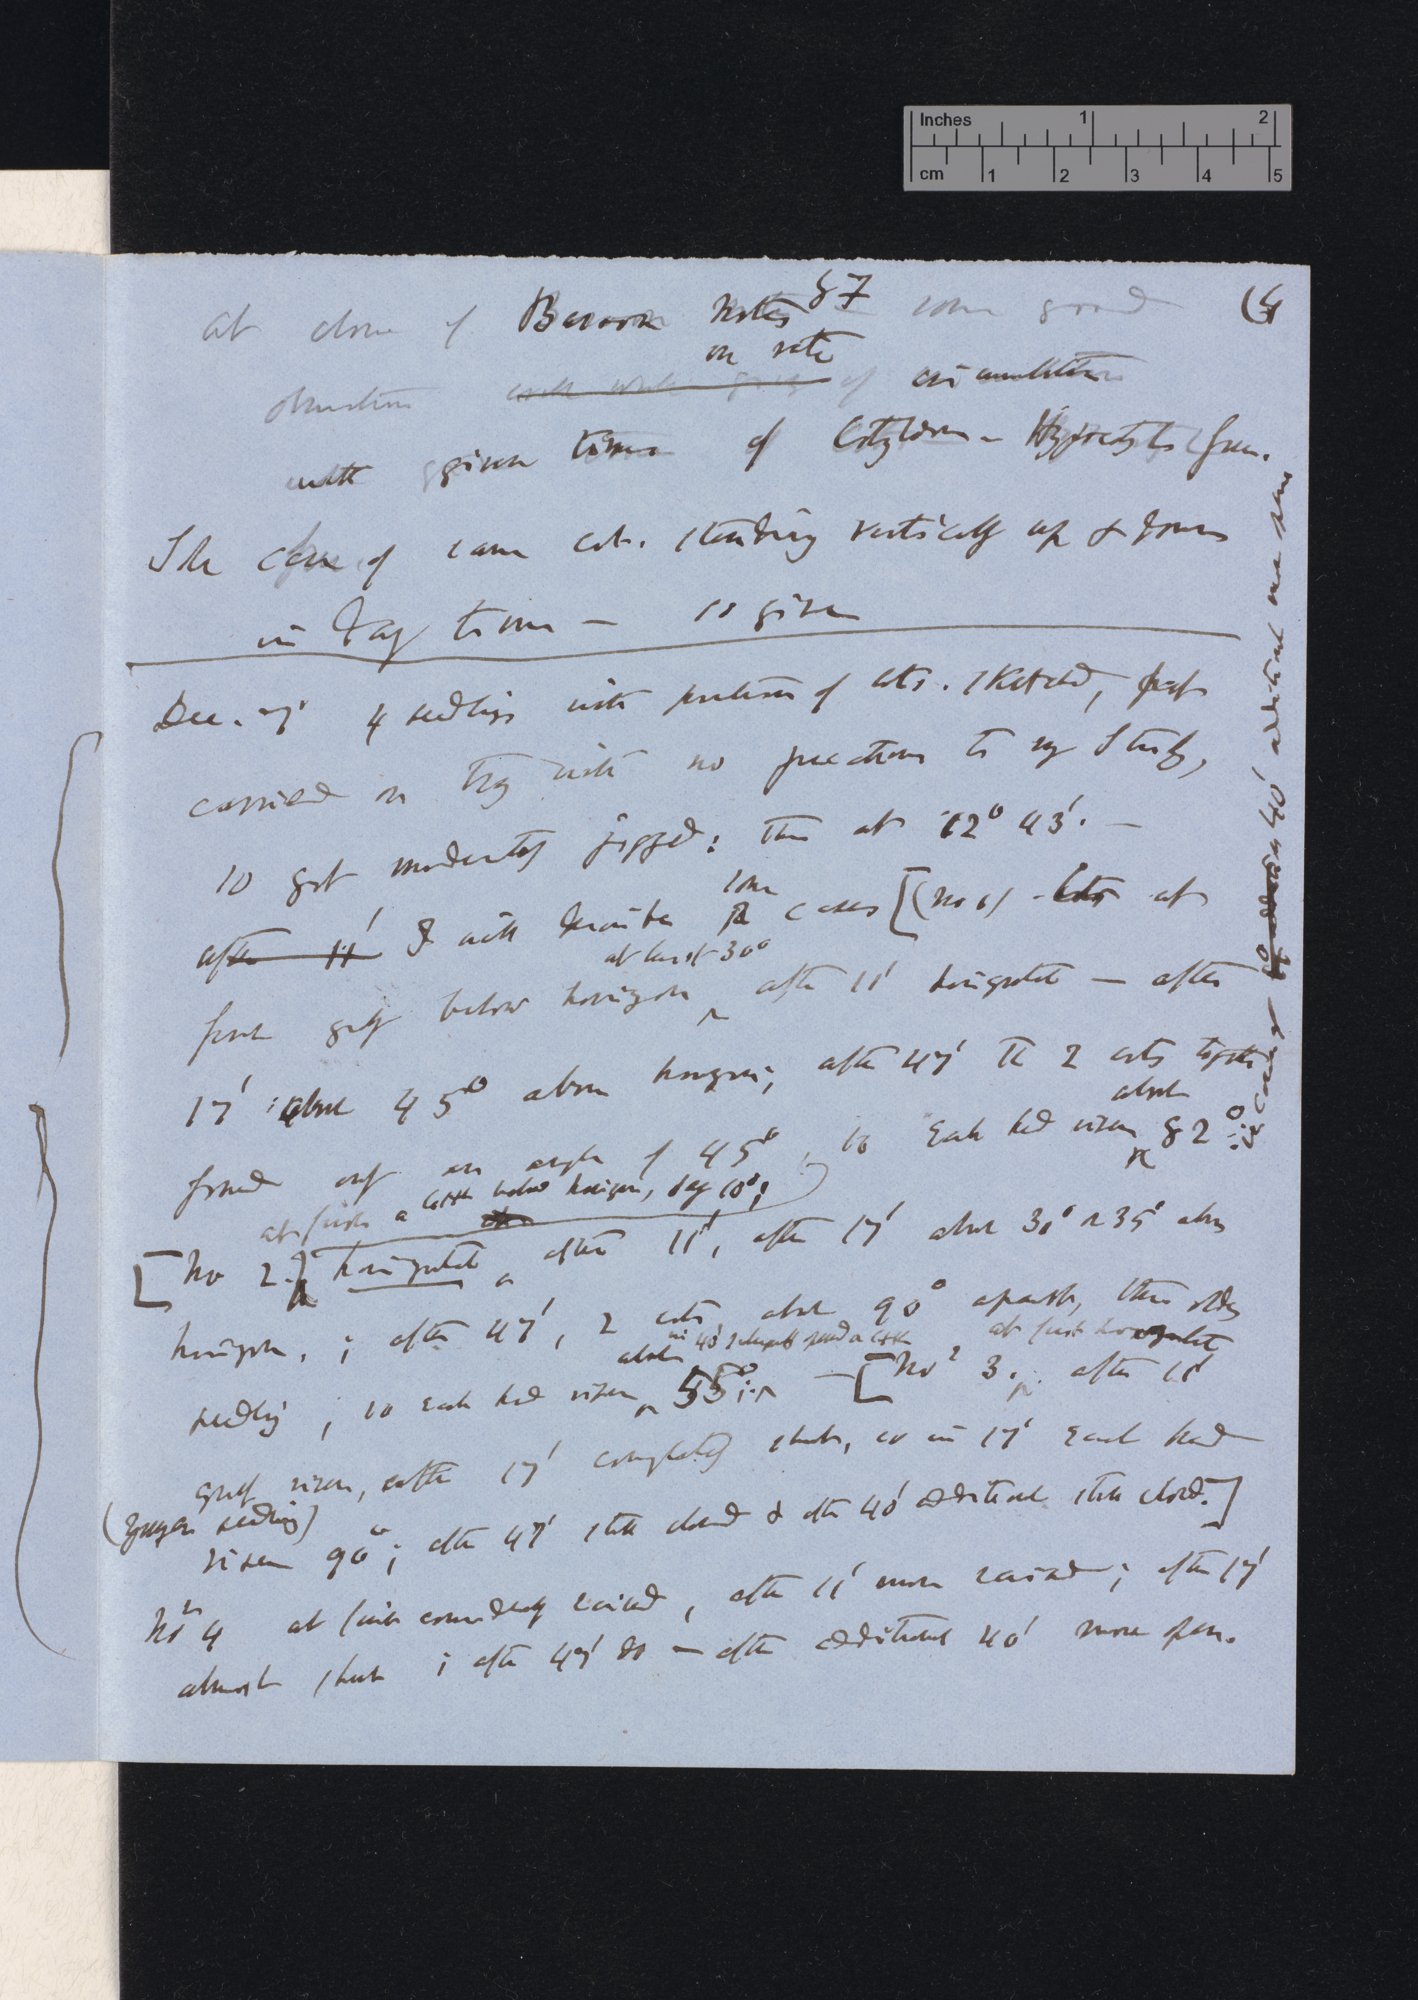 Inches 1 2
cm 1 2 3 4 5
(4
at close of Notes 87 some good
on rate
with given times of Cotyledon -
The case of same cots. standing vertically up & down
in day time — is given
Dec. 7' 4 seedlings with position of cots. sketched,
carried on tray with no to my Study,
so got moderately jigged: this at 12° 43'. —
some
after 11' I will describe cases [(No 1) cots at
at least 30°
first greatly below horizon after 11' horizontal — after
17' about 45° above horizon; after 47' the 2 cots together
about
formed only an angle of 45°, so each had risen 82°:
at first a little below horizon, say 10°;
[No 2.] horizontal after 11', after 17' about 30° or 35° above
horizon, ; after 47', 2 cots about 90° apart, this older
about in 40' a little at first horizontal
seedling, so each had risen 55°; — [No 3. after 11'
greatly risen, after 17' completely shut, so in 17' each had
(younger seedling)
risen 90°; after 47' still closed & after 40' additional still closed.]
No 4 at first considerably raised, after 11' more raised; after 17'
almost shut; after 47' do — after additional 40' more open.
40' additional